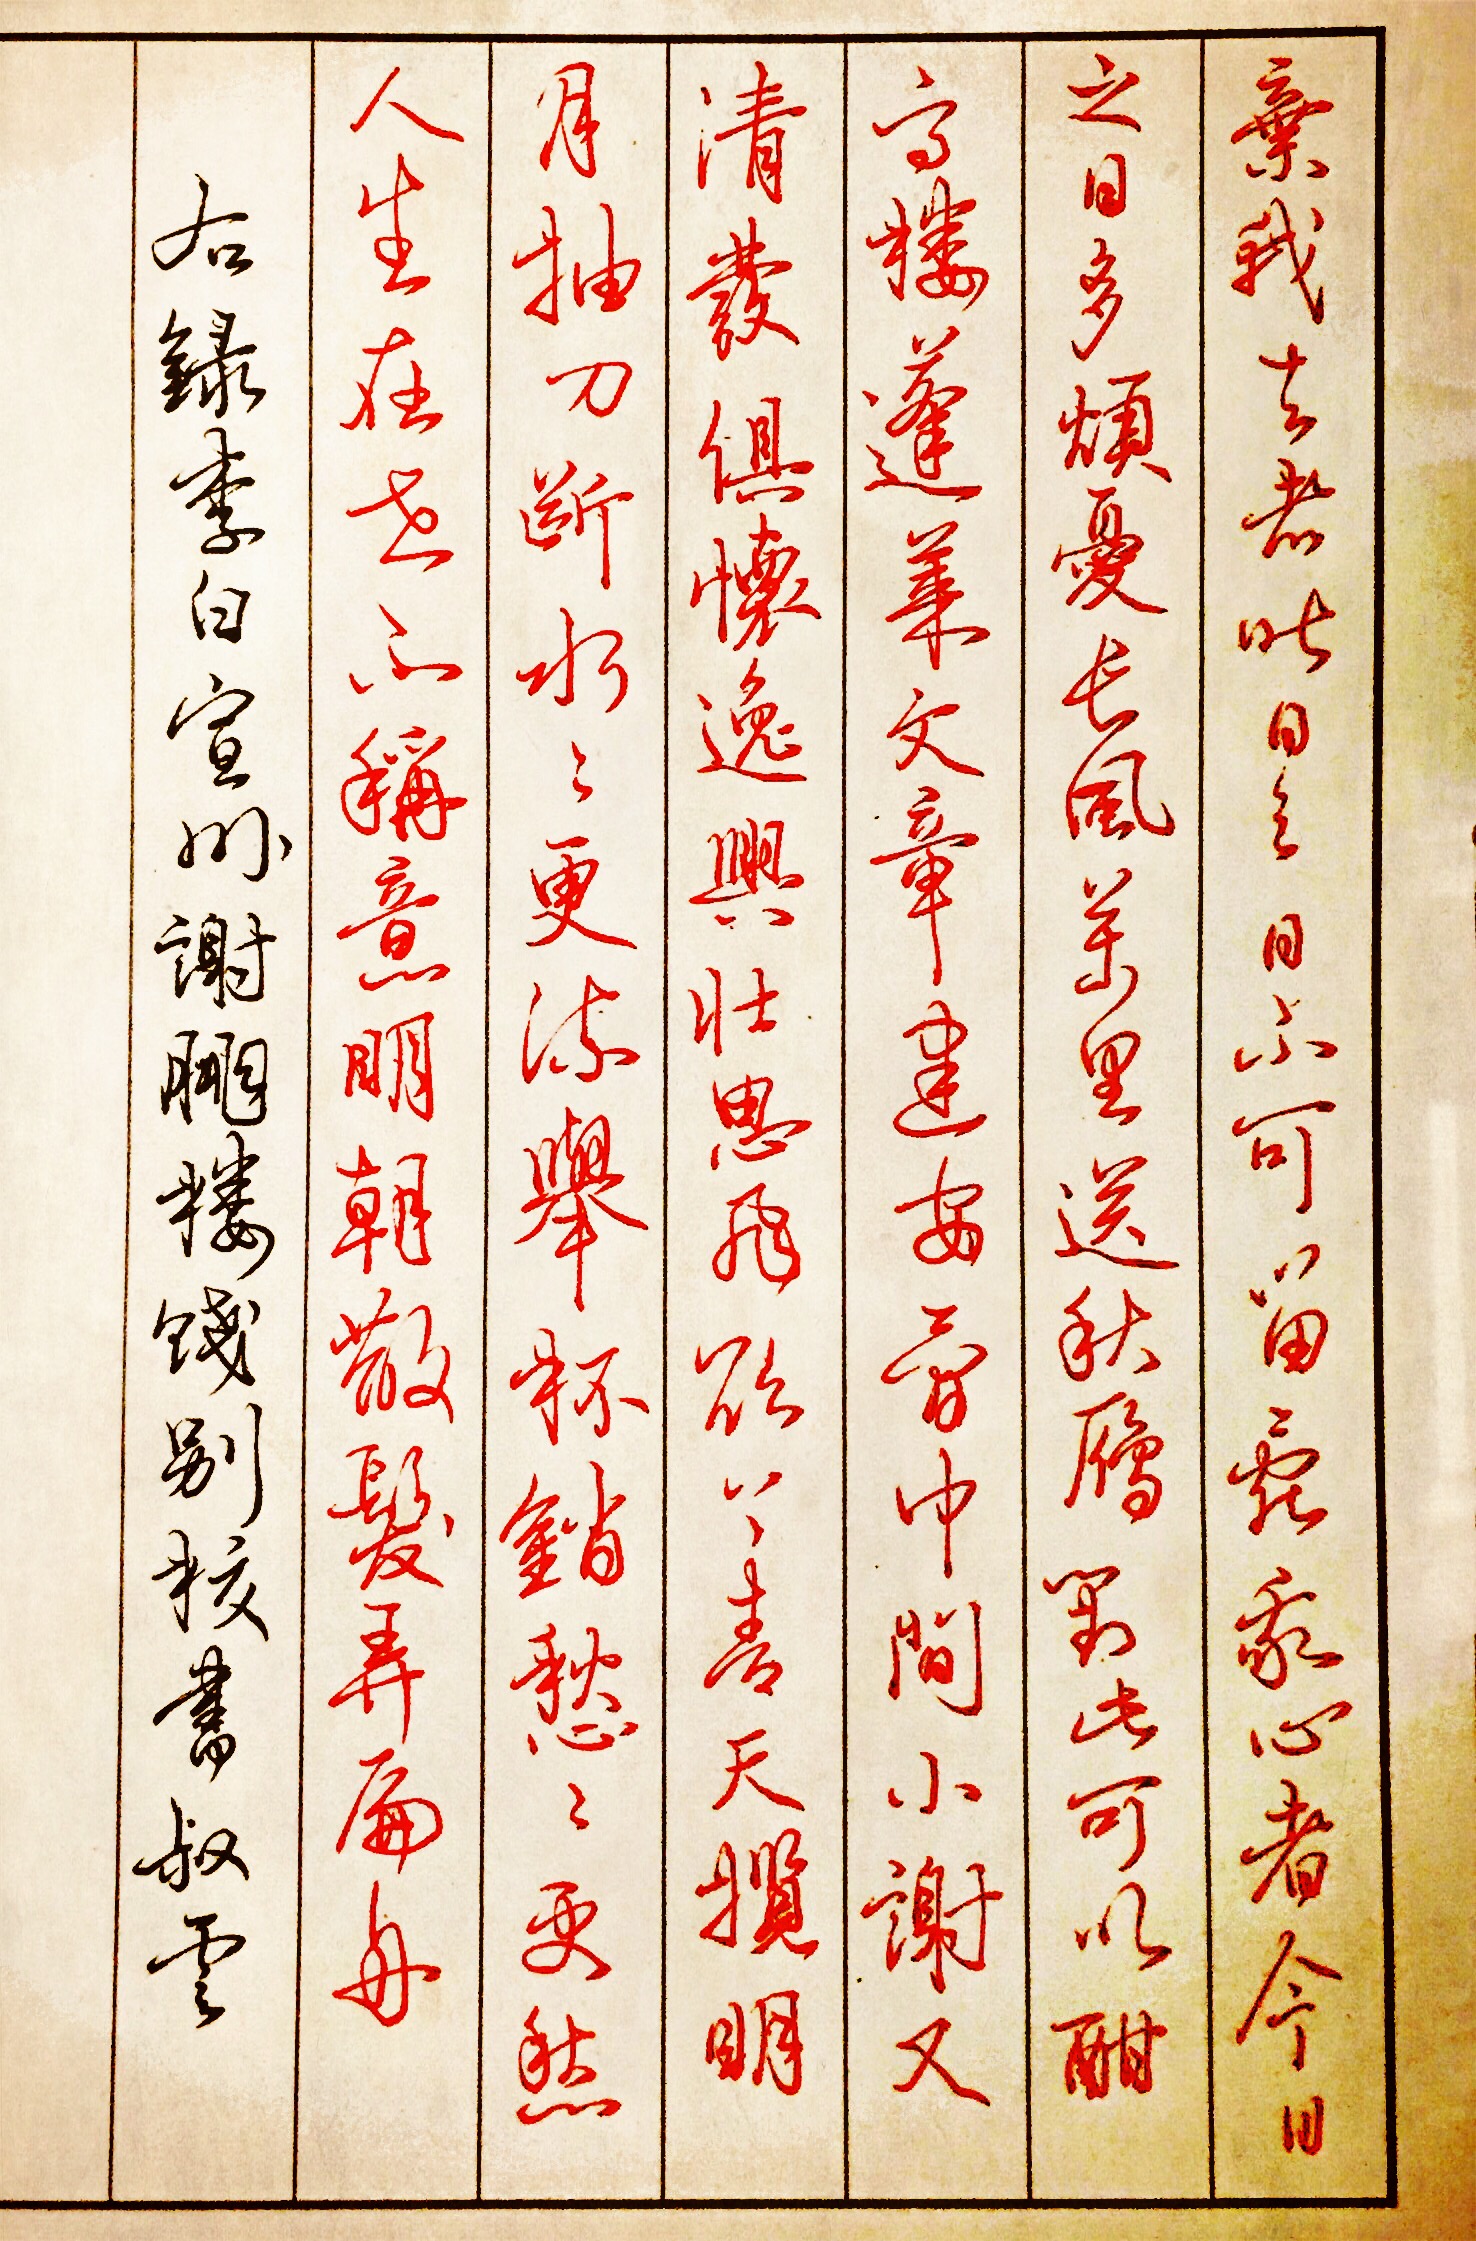 棄我去者昨日之日不可留亂我心者今日
之日多煩憂長風萬里送秋鴈對此可以酣
高樓蓬萊文章建安骨中間小謝又
清發俱懷逸興壯思飛欲上青天攬明
月抽刀斷水〻更流舉杯銷愁〻更愁
人生在世不稱意明朝散髮弄扁舟
右錄李白宣州謝朓樓餞別校書叔雲